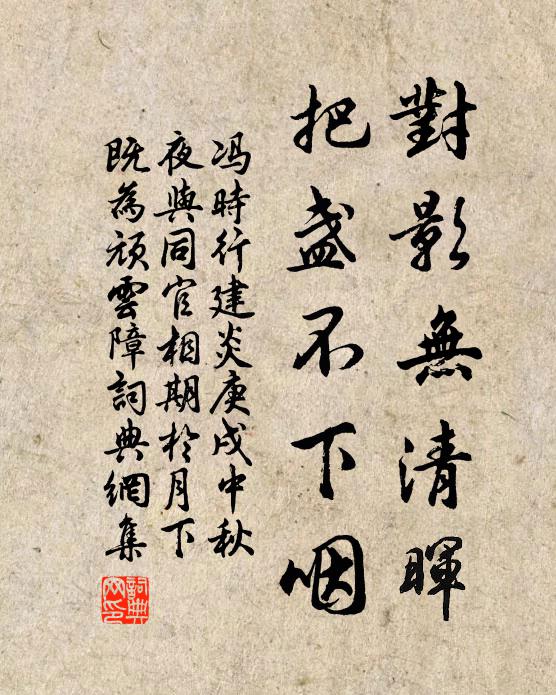 對影無清暉
把盞不下咽
冯時行建炎庚戌中秋
夜與同官相期於月下
既為頑雲障詞典網集
詞典
网印